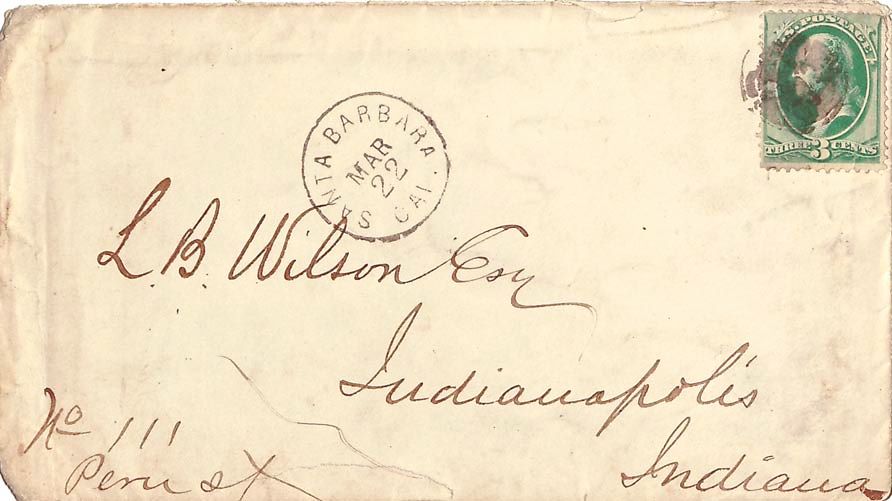 U.S. POSTAGE
THREE 3 CENTS
SANTA BARBARA CAL.
MAR
22
L. B. Wilson Esq
Indianapolis
Indiana
No 111
Peru st